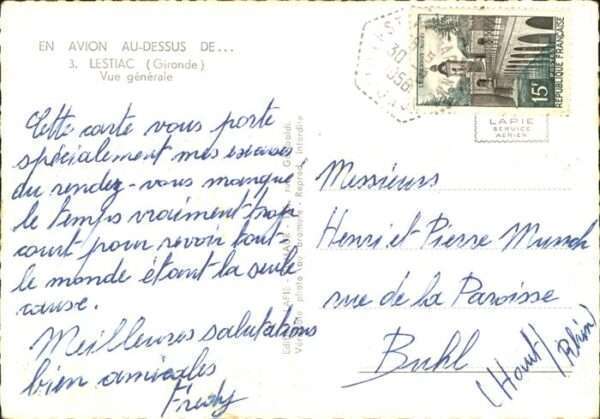 EN AVION AU-DESSUS DE...
3. LESTIAC (Gironde)
Vue générale
Cette carte vous porte
spécialement mes excuses
du rendez-vous manqué,
le temps vraiment trop
court pour revoir tout
le monde étant la seule
cause.
Meilleures salutations
bien amicales
Fredy
LAPIE
SERVICE
AÉRIEN
Messieurs
Henri et Pierre Munsch
rue de la Paroisse
Buhl
(Haut/Rhin)
15F
REPUBLIQUE FRANÇAISE
30
1958
Véritable photo au bromure - Reprod. interdite